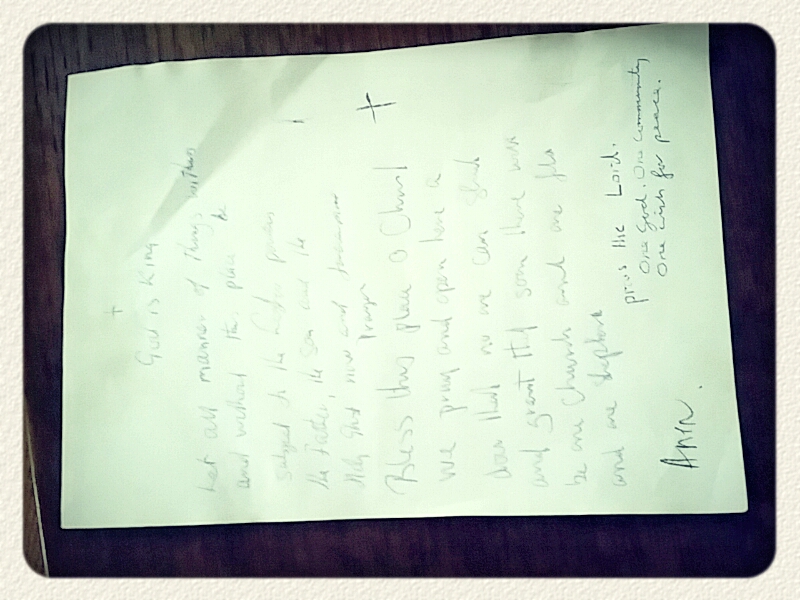 God is King
Let all manner of things within
and without this place be
subject to the powers
the Father, the Son and the
Holy Ghost now and
Prayer
Bless this place O Christ
we pray and open here a
door that no one can shut
and grant that soon there will
be one Church and one
and one shepherd
praise the Lord.
One God. One Community
One wish for peace.
Amen.